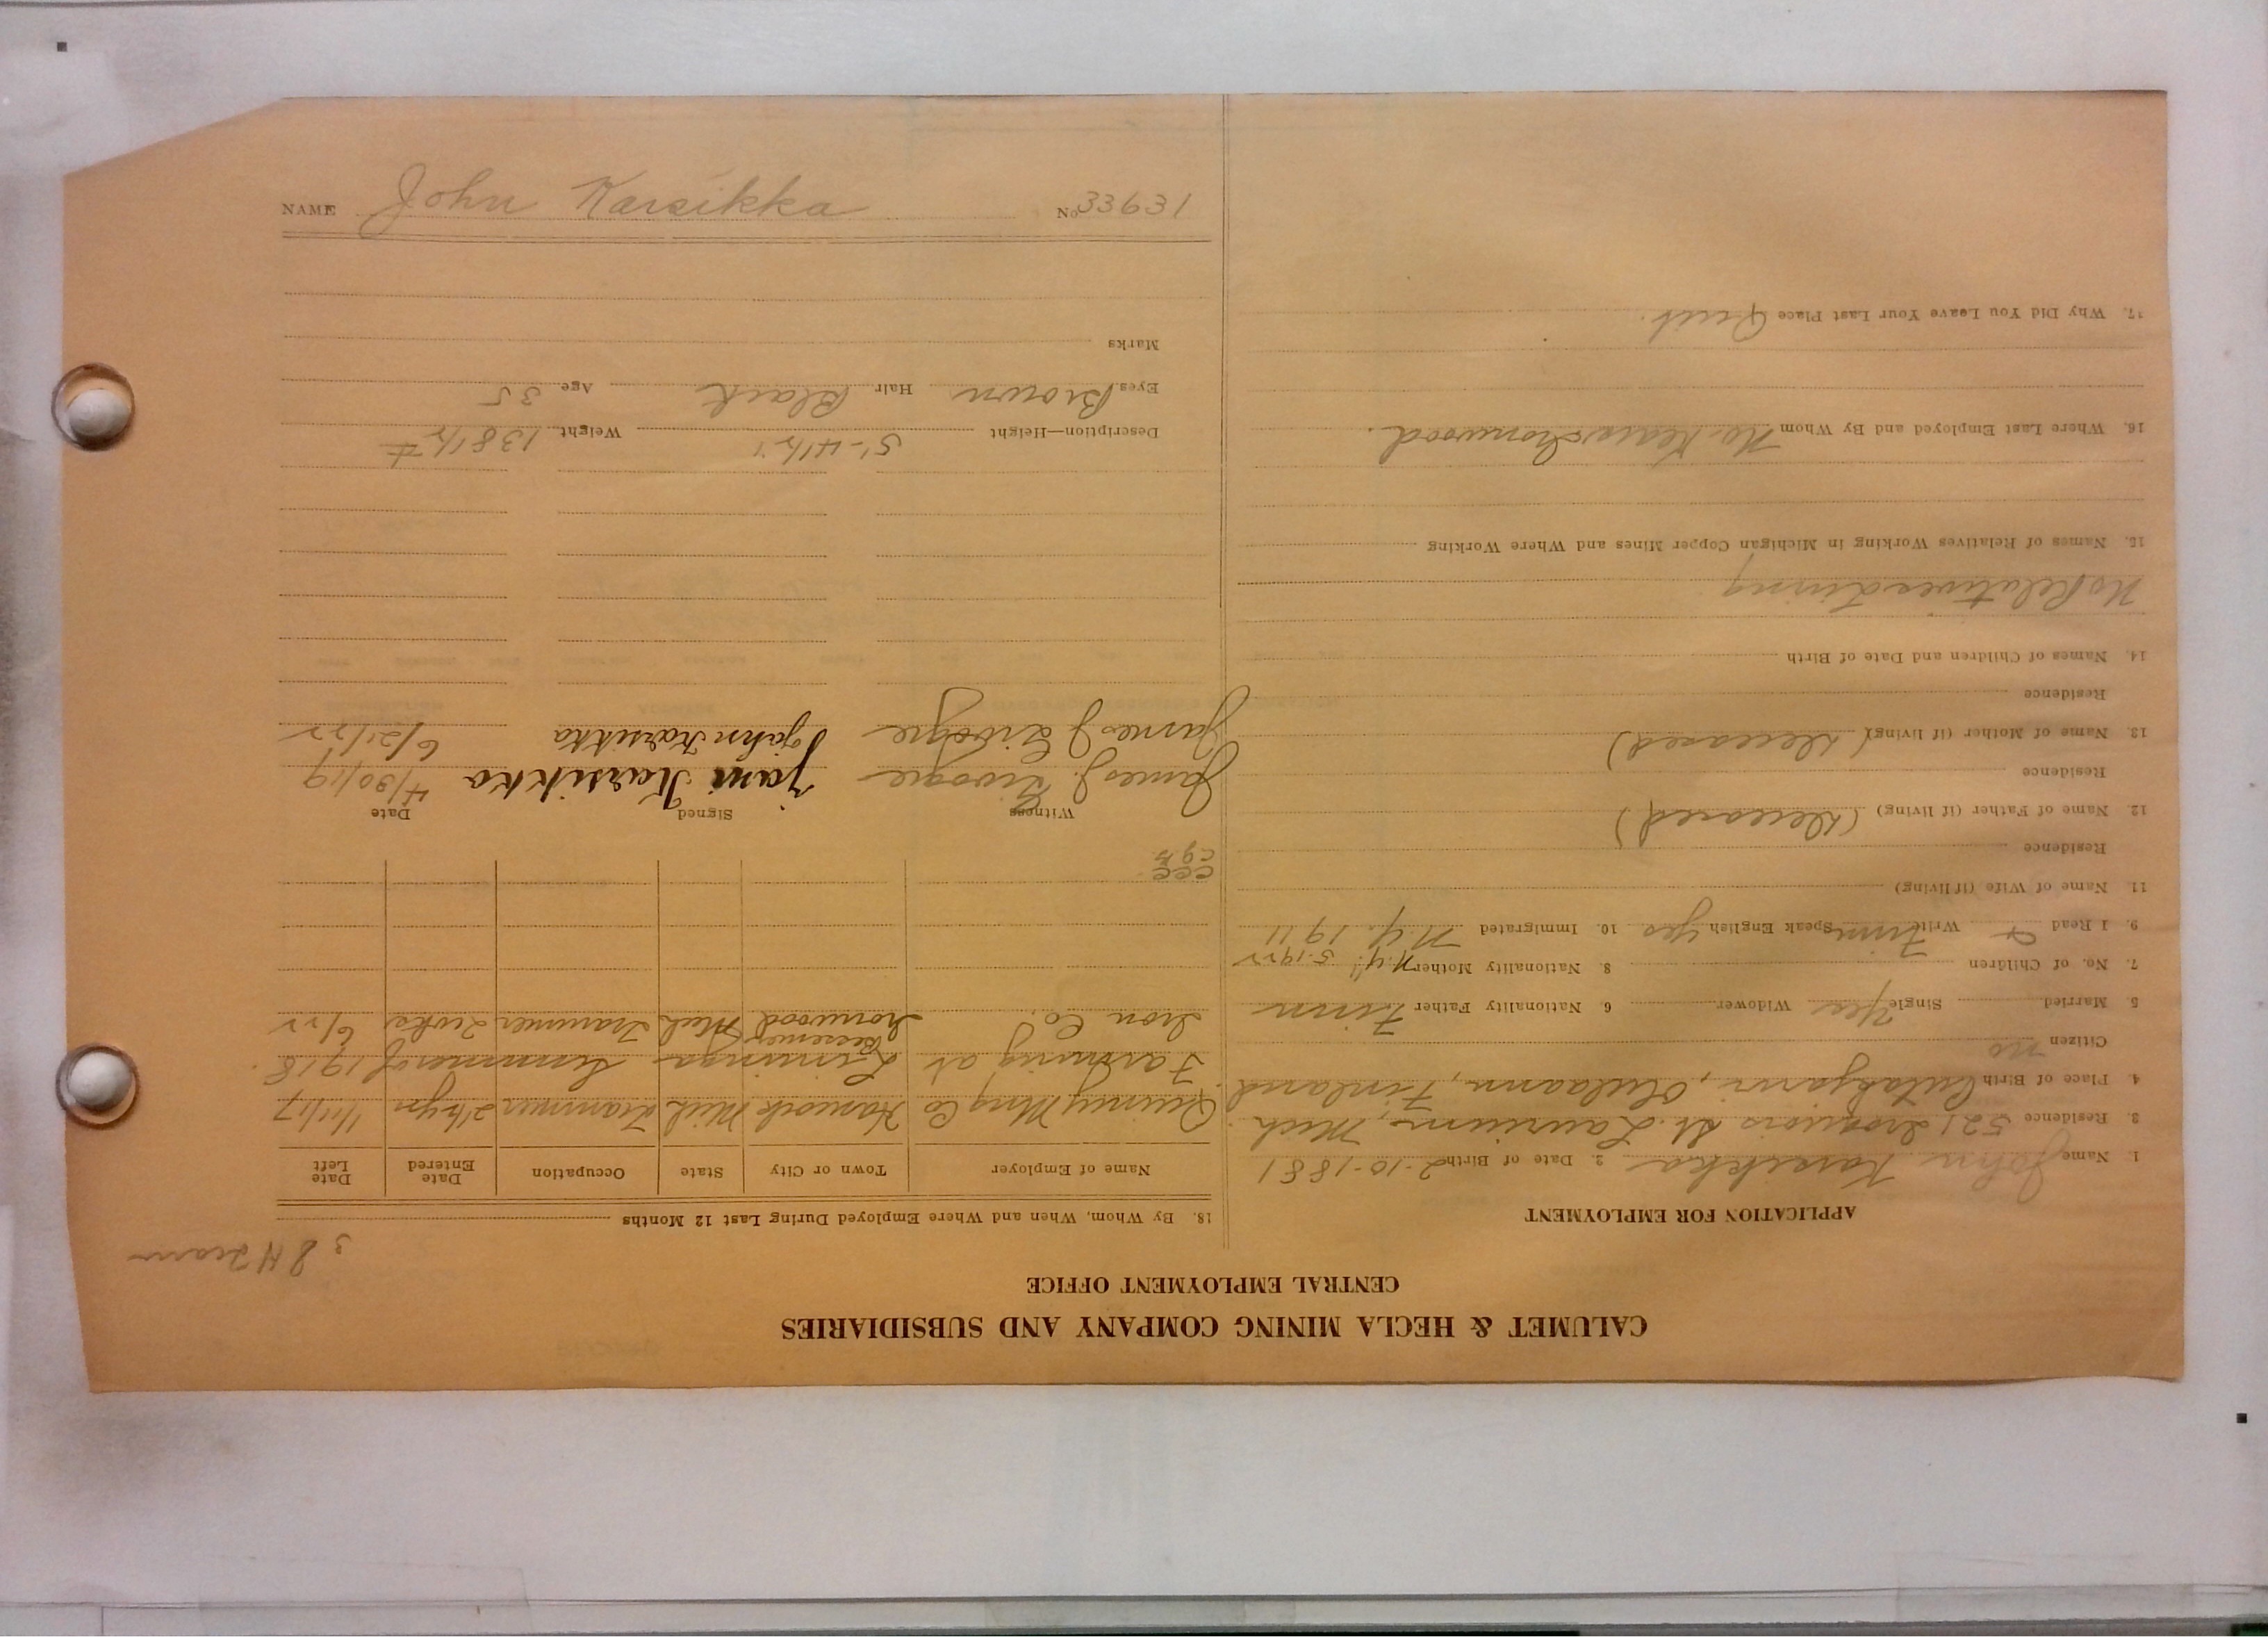 NAME John Karsikka No 33631
CALUMET & HECLA MINING COMPANY AND SUBSIDIARIES
CENTRAL EMPLOYMENT OFFICE
APPLICATION FOR EMPLOYMENT
1. Name John Karsikka 2. Date of Birth 2-10-1881
3. Residence 521 Iroquois St. Laurium, Mich.
4. Place of Birth Oulaann, Finland
Citizen no
5. Married Single Yes Widower 6. Nationality Father Finn
7. No. of Children 8. Nationality Mother N.Y. 5-1922
9. I Read & Write Finn Speak English yes 10. Immigrated N.Y. 1911
11. Name of Wife (if living)
Residence
12. Name of Father (if living) (Deceased)
Residence
13. Name of Mother (if living) (Deceased)
Residence
14. Names of Children and Date of Birth
No Relatives Living
15. Names of Relatives Working in Michigan Copper Mines and Where Working
16. Where Last Employed and By Whom Ironwood.
17. Why Did You Leave Your Last Place Quit.
3 8 H Tram
18. By Whom, When and Where Employed During Last 12 Months
Name of Employer Town or City State Occupation Date Entered Date Left
Quincy Mng Co Hancock Mich Trammer 2½ yr 1/1/17
Farming at Liminga Summer of 1918.
Bessemer
Iron Co. Ironwood Mich Trammer 6/22
CCC
Witness Signed Date
James J. Jani Karsikka 4/30/19
James J John Karsikka 6/21/22
Description—Height 5'-4½" Weight 138½ #
Eyes Brown Hair Black Age 35
Marks